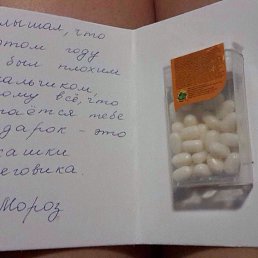 лышал, что
этом году
был плохим
альчиком,
ому всё, что
таётся тебе
дарок - это
кашки
еговика.
Мороз